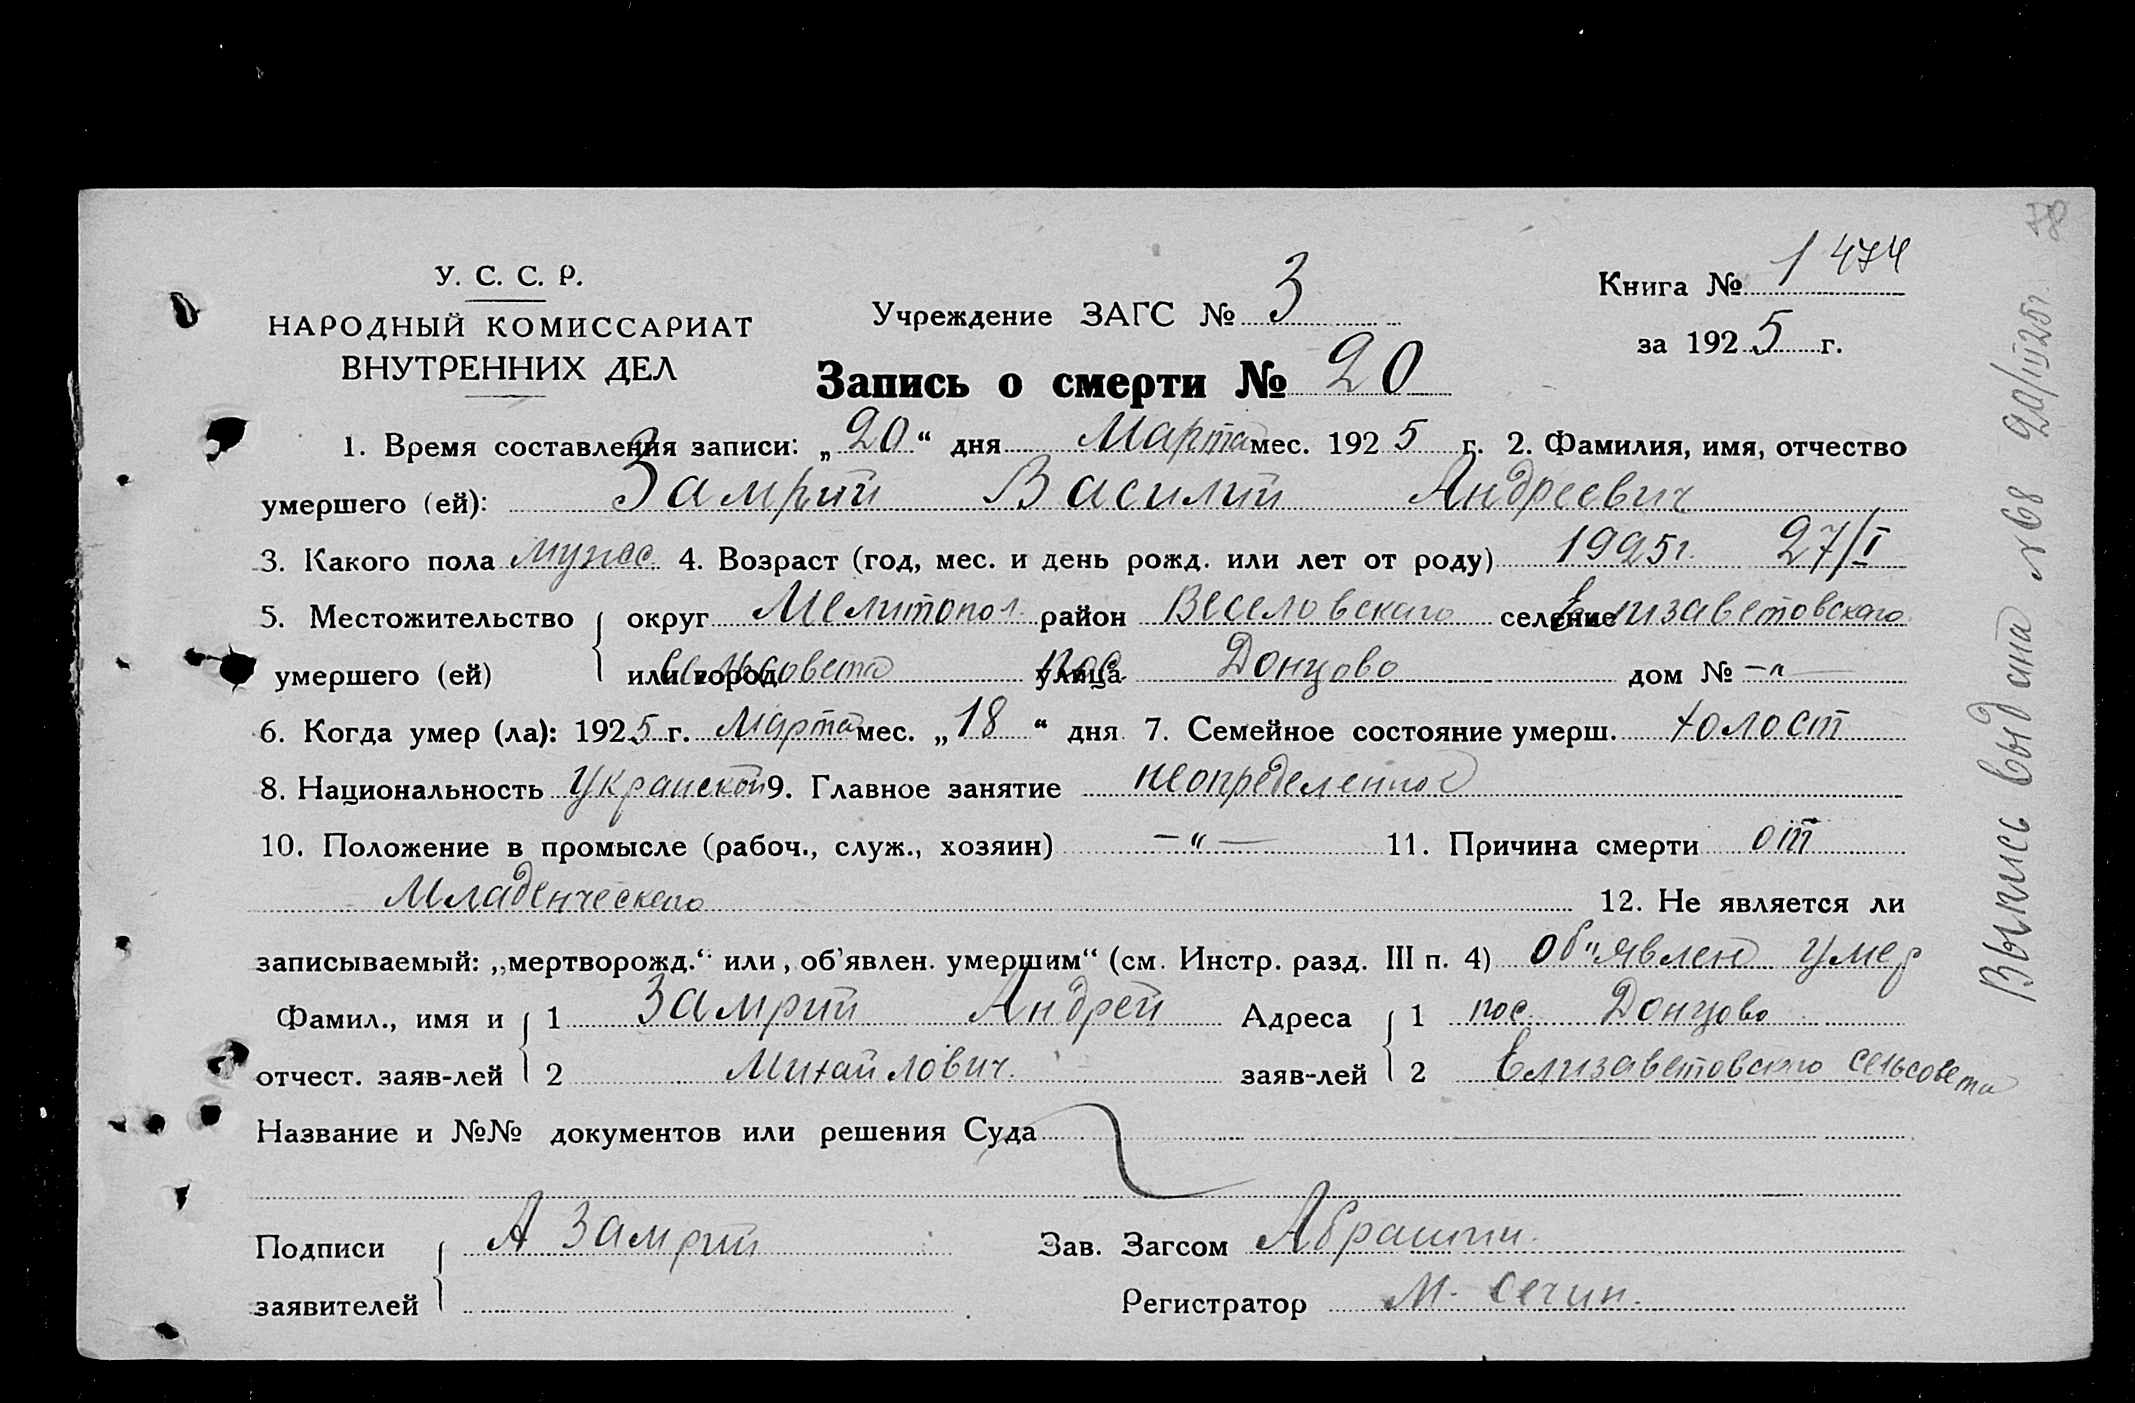 У. С. С. Р.
НАРОДНЫЙ КОМИССАРИАТ
ВНУТРЕННИХ ДЕЛ
Учреждение ЗАГС № 3
Книга № 1 474
за 1925 г.
Запись о смерти № 20
1. Время составления записи: „20“ дня Марта мес. 1925 г. 2. Фамилия, имя, отчество
умершего (ей): Замрий Василий Андреевич
3. Какого пола мужс. 4. Возраст (год, мес. и день рожд. или лет от роду) 1925г. 27/I
5. Местожительство округ Мелитопол. район Веселовскаго селение Елизаветовскаго
умершего (ей) или город сельсовета улица пос. Донцово дом № -"-
6. Когда умер (ла): 1925 г. Марта мес. „18“ дня 7. Семейное состояние умерш. холост
8. Национальность Украинской 9. Главное занятие неопределенное
10. Положение в промысле (рабоч., служ., хозяин) -"- 11. Причина смерти от
Младенческаго 12. Не является ли
записываемый: „мертворожд.“ или, об'явлен. умершим“ (см. Инстр. разд. III п. 4) Об"явлен умер
Фамил., имя и 1 Замрий Андрей Адреса 1 пос. Донцово
отчест. заяв-лей 2 Михайлович. заяв-лей 2 Елизаветовского сельсовета
Название и №№ документов или решения Суда
Подписи А Замрий Зав. Загсом
заявителей Регистратор М. Сечин.
Выпись выдана №68 20/III 25г.